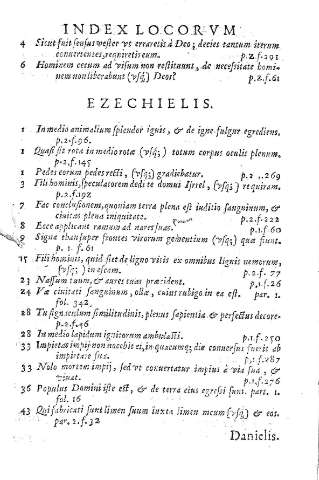 INDEX LOCORVM
4 Sicut fuit sensus vester vt erraretis à Deo; decies tantum iterum
convertentes, requiretis eum. p.2.f.291
6 Hominem cecum ad visum non restituunt, de necessitate homi-
nem non liberabunt (vsq;) Deos? p.2.f.61
EZECHIELIS.
1 In medio animalium splendor ignis, & de igne fulgur egrediens.
p.2.f.96.
1 Quasi sit rota in medio rota (vsq;) totum corpus oculis plenum.
p.2.f.145
1 Pedes eorum pedes recti, (vsq;) gradiebatur. p.2 ..269
3 Fili hominis, speculatorem dedi te domui Israel, (vsq;) requiram.
p.2.f.192
7 Fac conclusionem, quoniam terra plena est iuditio sanguinum, &
civitas plena iniquitate. p.2.f.222
8 Ecce applicant ramum ad nares suas. p.1.f.60
9 Signa thau super frontes virorum gementium (vsq;) quæ fiunt.
p.1.f.61
15 Fili hominis, quid fiet de ligno vitis ex omnibus lignis nemorum,
(vsq;) in escam. p.2.f.77
23 Nassum tuum, & aures tuas præcident. p.1.f.26
24 Væ civitati sanguinum, ollæ, cuius rubigo in ea est. par. 1.
fol. 342.
28 Tu signaculum similitudinis, plenus sapientia & perfectus decore.
p.2.f.46
28 In medio lapidum ignitorum ambulasti. p.1.f.250
33 Impietas impij non nocebit ei, in quacumq; die conversus fuerit ab
impietate sua. p.1.f.287
33 Nolo mortem impij, sed vt convertatur impius à via sua, &
vivat. p.1.f.276
36 Populus Domini iste est, & de terra eius egressi sunt. part. 1.
fol. 16
43 Qui fabricati sunt limen suum iuxta limen meum (vsq;) & eos.
par.2.f.32
Danielis.